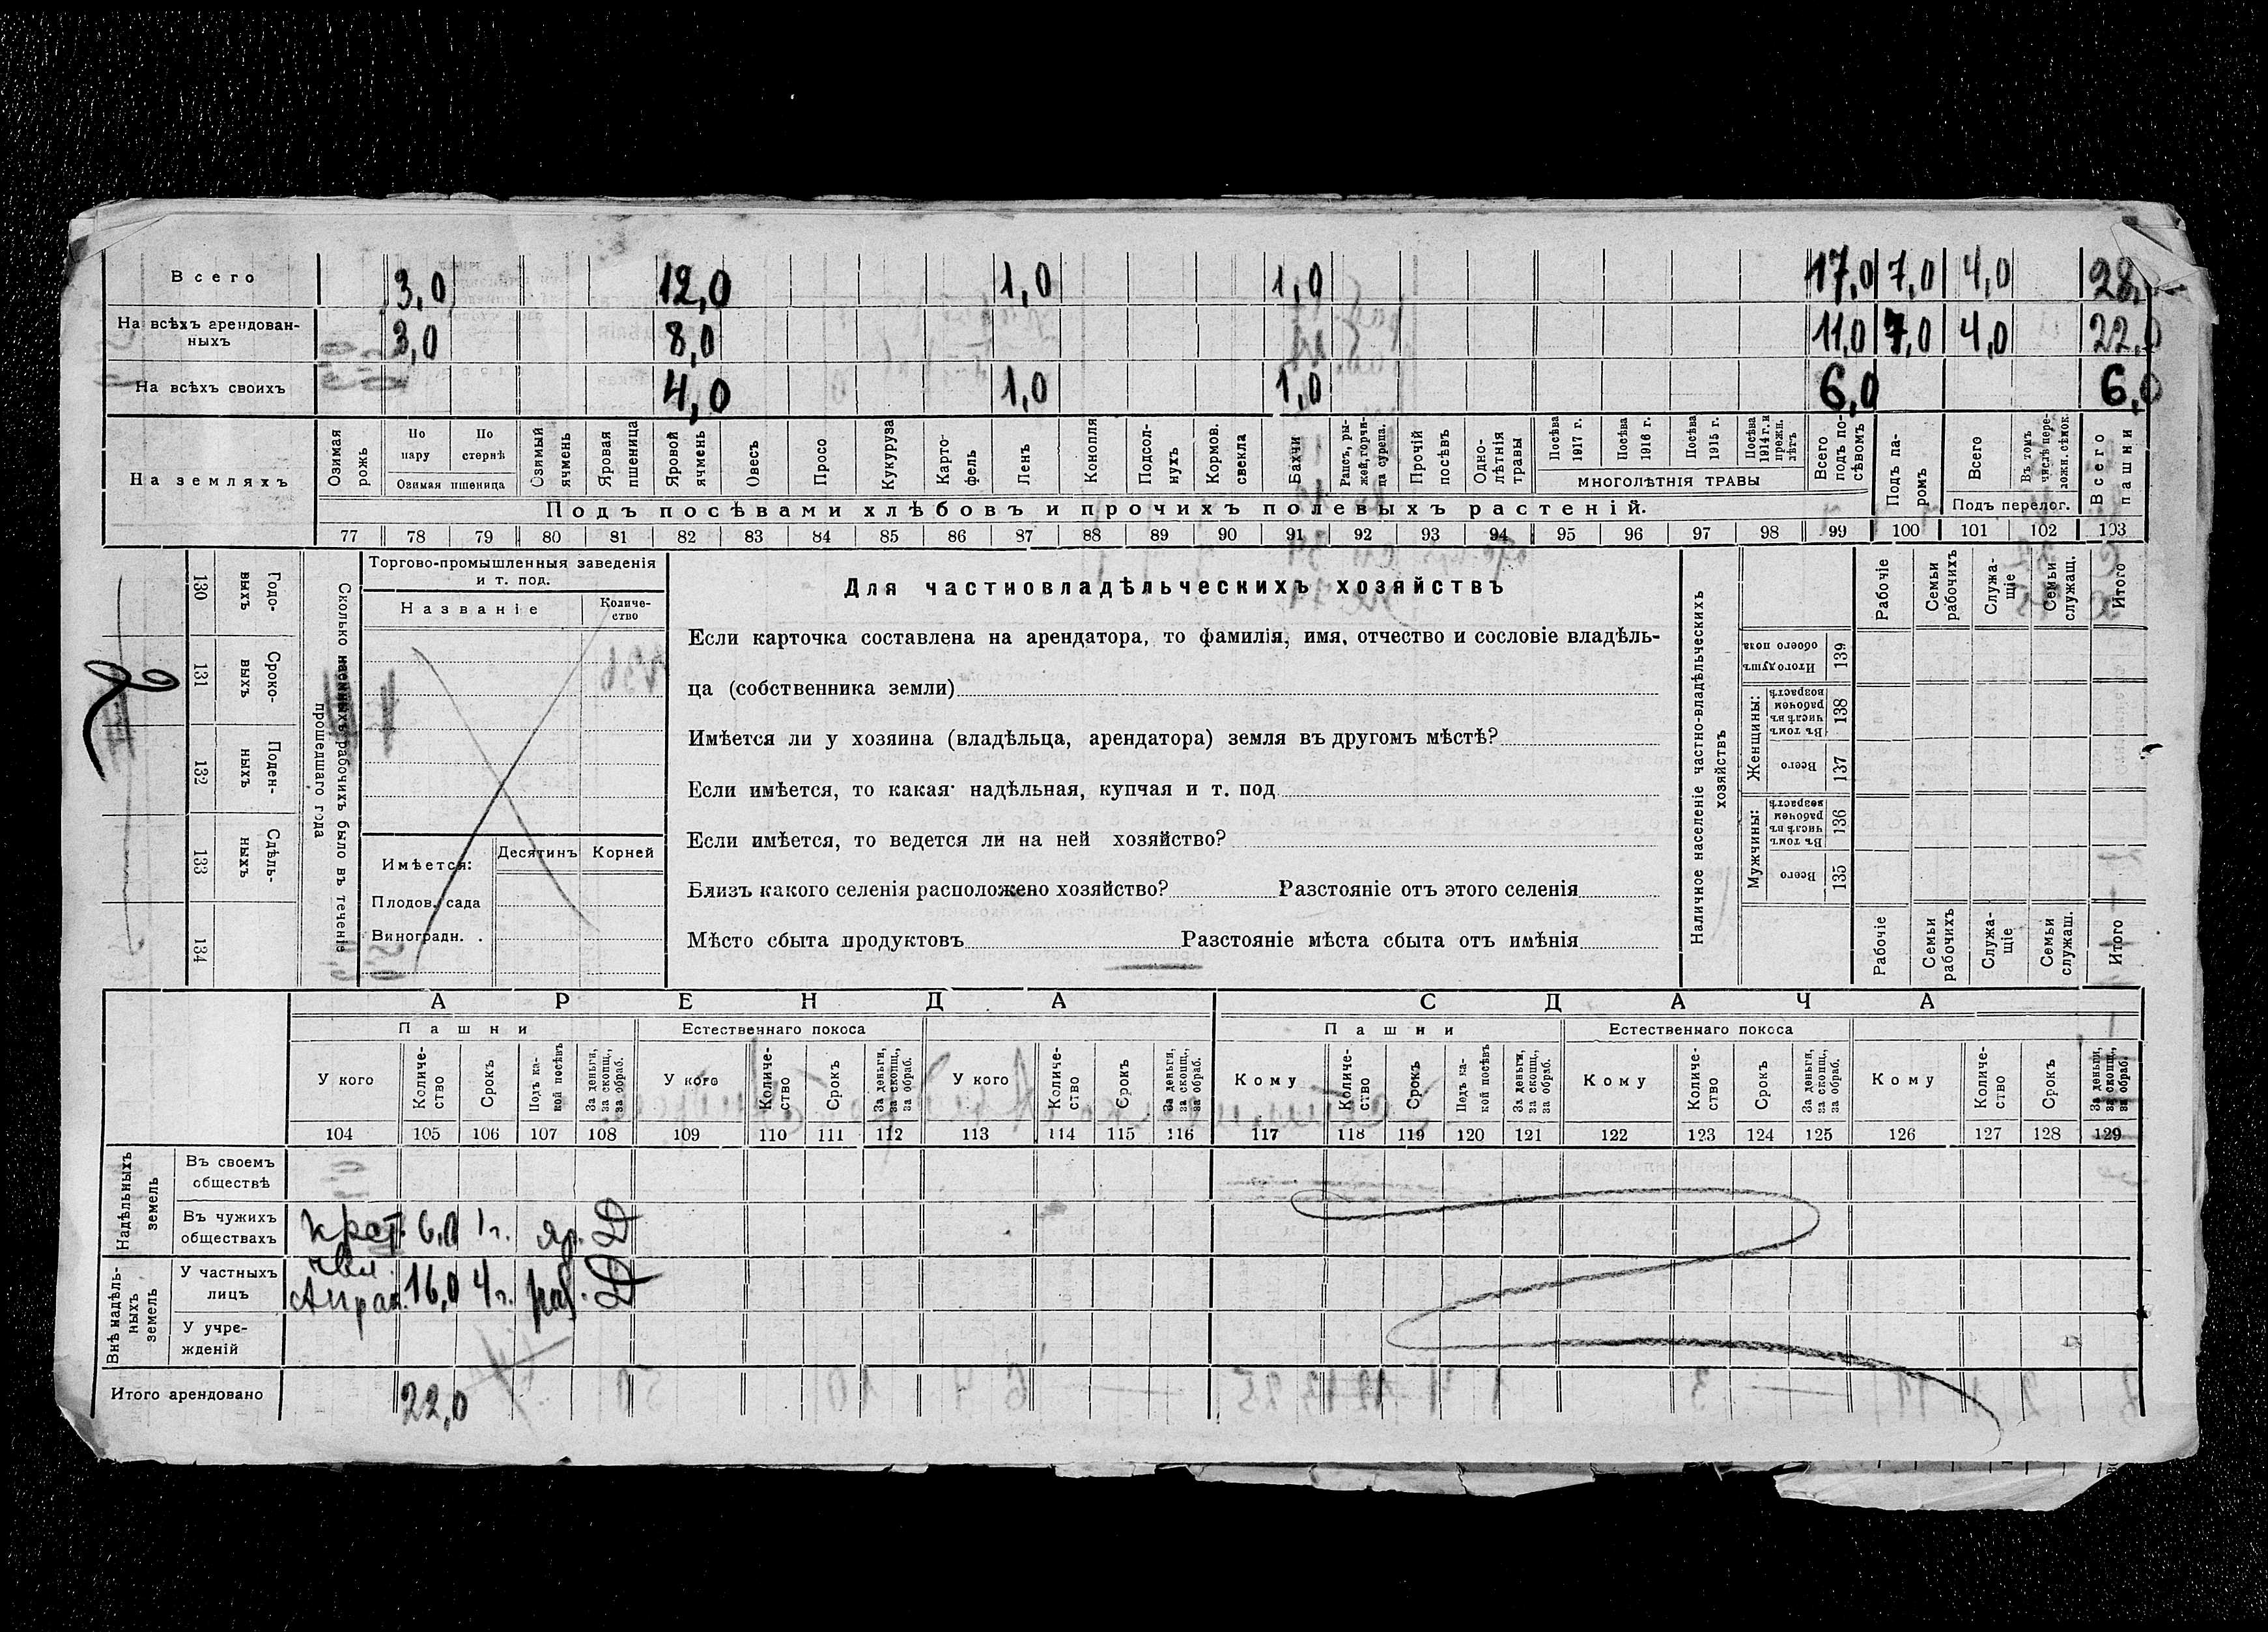 Всего 3,0 12,0 1,0 1,0 17,0 7,0 4,0 28,
На всѣхъ арендован-
ныхъ 3,0 8,0 11,0 7,0 4,0 22,0
На всѣхъ своихъ 4,0 1,0 1,0 6,0 6,0
На земляхъ
Озимая рожь
По пару
По стернѣ
Озимая пшеница
Озимый ячмень
Яровая пшеница
Яровой ячмень
Овесъ
Просо
Кукуруза
Карто-
фель
Ленъ
Конопля
Подсол-
нухъ
Кормов. свекла
Бахчи
Рапсъ, ры-
жей, горчи-
ца сурепа.
Прочій посѣвъ
Одно-
лѣтнія травы
Посѣва 1917 г.
Посѣва 1916 г.
Посѣва 1915 г.
Посѣва 1914 г. и прежн. лѣтъ
МНОГОЛѢТНІЯ ТРАВЫ
Всего подъ по-
сѣвомъ
Подъ па-
ромъ
Всего
Въ томъ числѣ пере-
ложн. сѣнок.
Подъ перелог.
Всего пашни
Подъ посѣвами хлѣбовъ и прочихъ полевыхъ растеній.
77 78 79 80 81 82 83 84 85 86 87 88 89 90 91 92 93 94 95 96 97 98 99 100 101 102 103
130 Годо-
выхъ
131 Сроко-
выхъ
132 Поден-
ныхъ
133 Сдѣль-
ныхъ
134
Сколько наемныхъ рабочихъ было въ теченіе
прошедшаго года
Торгово-промышленныя заведенія
и т. под.
Названіе
Количе-
ство
Имѣется: Десятинъ Корней
Плодов. сада
Виноградн. .
Для частновладѣльческихъ хозяйствъ
Если карточка составлена на арендатора, то фамилія, имя, отчество и сословіе владѣль-
ца (собственника земли)
Имѣется ли у хозяина (владѣльца, арендатора) земля въ другомъ мѣстѣ?
Если имѣется, то какая: надѣльная, купчая и т. под
Если имѣется, то ведется ли на ней хозяйство?
Близъ какого селенія расположено хозяйство? Разстояніе отъ этого селенія
Мѣсто сбыта продуктовъ Разстояніе мѣста сбыта отъ имѣнія
Наличное населеніе частно-владѣльческихъ
хозяйствъ
Рабочіе
Семьи рабочихъ
Служа-
щіе
Семьи служащ.
Итого
Итого душъ обоего пола 139
Женщины:
Въ томъ числѣ въ рабочемъ возрастѣ 138
Всего 137
Мужчины:
Въ томъ числѣ въ рабочемъ возрастѣ 136
Всего 135
Рабочіе
Семьи рабочихъ
Служа-
щіе
Семьи служащ.
Итого
АРЕНДА СДАЧА
Пашни Естественнаго покоса Пашни Естественнаго покоса
У кого
Количе-
ство
Срокъ
Подъ ка-
кой посѣвъ
За деньги, за скопщ., за обраб.
У кого
Количе-
ство
Срокъ
За деньги, за скопщ., за обраб.
У кого
Количе-
ство
Срокъ
За деньги, за скопщ., за обраб.
Кому
Количе-
ство
Срокъ
Подъ ка-
кой посѣвъ
За деньги, за скопщ., за обраб.
Кому
Количе-
ство
Срокъ
За деньги, за скопщ., за обраб.
Кому
Количе-
ство
Срокъ
За деньги, за скопщ., за обраб.
104 105 106 107 108 109 110 111 112 113 114 115 116 117 118 119 120 121 122 123 124 125 126 127 128 129
Надѣльныхъ земель
Въ своемъ
обществѣ
Въ чужихъ
обществахъ 6,0 1 г. яр. Д
Внѣ надѣль-
ныхъ земель
У частныхъ
лицъ 16,0 4 г. Д
У учре-
жденій
Итого арендовано 22,0